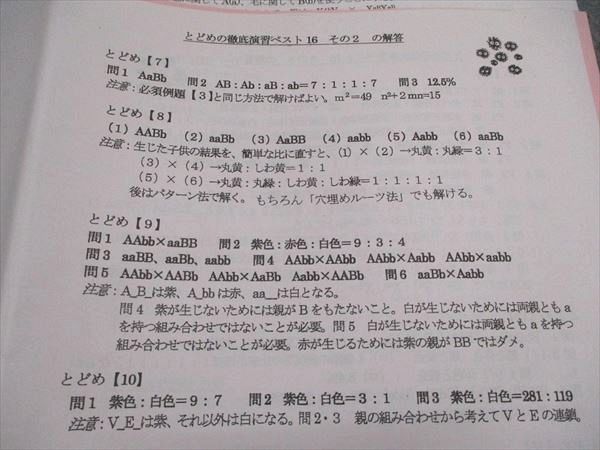 とどめの徹底演習ベスト16 その2 の解答
とどめ【7】
問1 AaBb 問2 AB:Ab:aB:ab=7:1:1:7 問3 12.5%
注意:必須例題【3】と同じ方法で解けばよい。m²=49 n²+2mn=15
とどめ【8】
(1) AABb (2) aaBb (3) AaBB (4) aabb (5) Aabb (6) aaBb
注意:生じた子供の結果を、簡単な比に直すと、(1)×(2)→丸黄:丸緑=3:1
(3)×(4)→丸黄:しわ黄=1:1
(5)×(6)→丸黄:丸緑:しわ黄:しわ緑=1:1:1:1
後はパターン法で解く。もちろん「穴埋めルーツ法」でも解ける。
とどめ【9】
問1 AAbb×aaBB 問2 紫色:赤色:白色=9:3:4
問3 aaBB、aaBb、aabb 問4 AAbb×AAbb AAbb×Aabb AAbb×aabb
問5 AAbb×AABb AAbb×AaBb Aabb×AABb 問6 aaBb×Aabb
注意:A_B_は紫、A_bbは赤、aa__は白となる。
問4 紫が生じないためには親がBをもたないこと。白が生じないためには両親ともa
を持つ組み合わせではないことが必要。問5 白が生じないためには両親ともaを持つ
組み合わせではないことが必要。赤が生じるためには紫の親がBBではダメ。
とどめ【10】
問1 紫色:白色=9:7 問2 紫色:白色=3:1 問3 紫色:白色=281:119
注意:V_E_は紫、それ以外は白になる。問2・3 親の組み合わせから考えてVとEの連鎖。